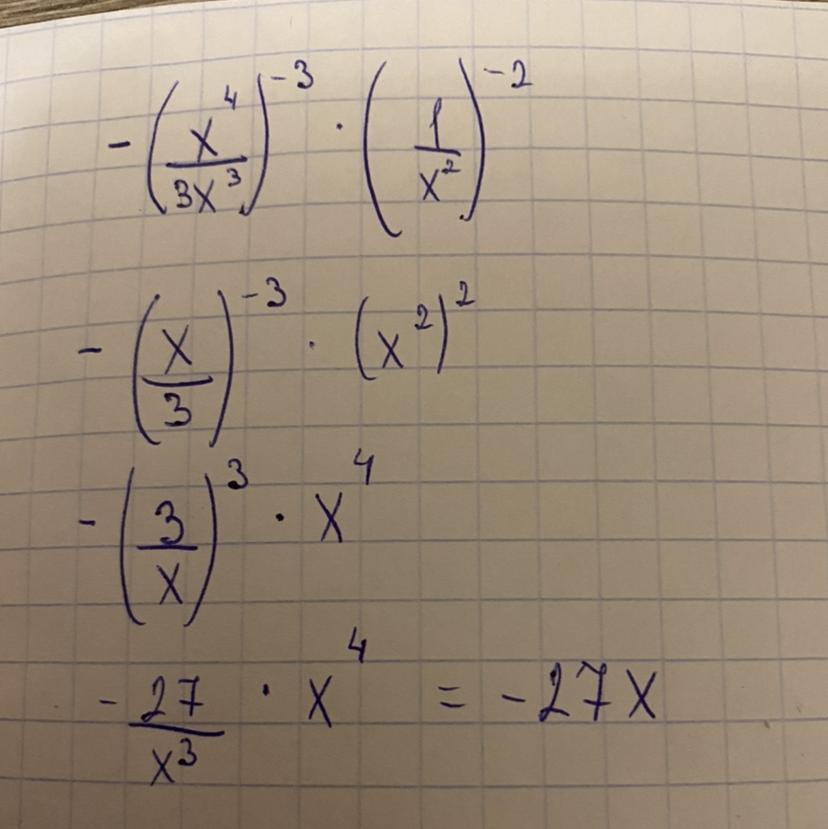 -(x⁴/3x³)⁻³ · (1/x²)⁻²
-(x/3)⁻³ · (x²)²
-(3/x)³ · x⁴
-27/x³ · x⁴ = -27x